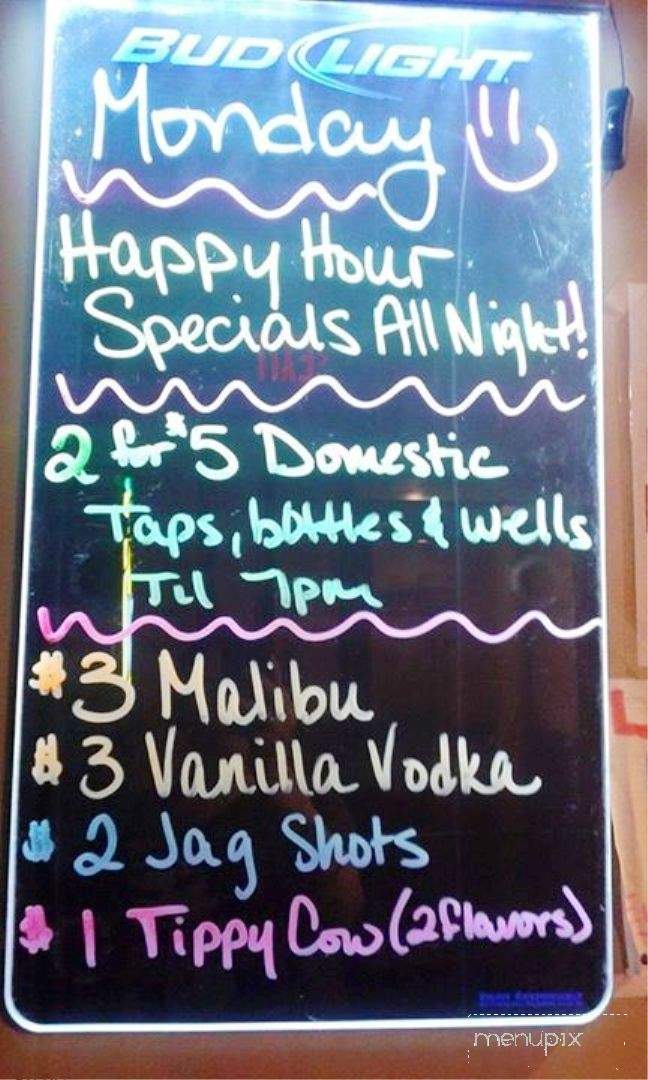 BUD LIGHT
Monday
Happy Hour
Specials All Night!
2 for $5 Domestic
Taps, bottles & wells
Til 7pm
$3 Malibu
$3 Vanilla Vodka
$2 Jag Shots
$1 Tippy Cow (2 flavors)
menupix